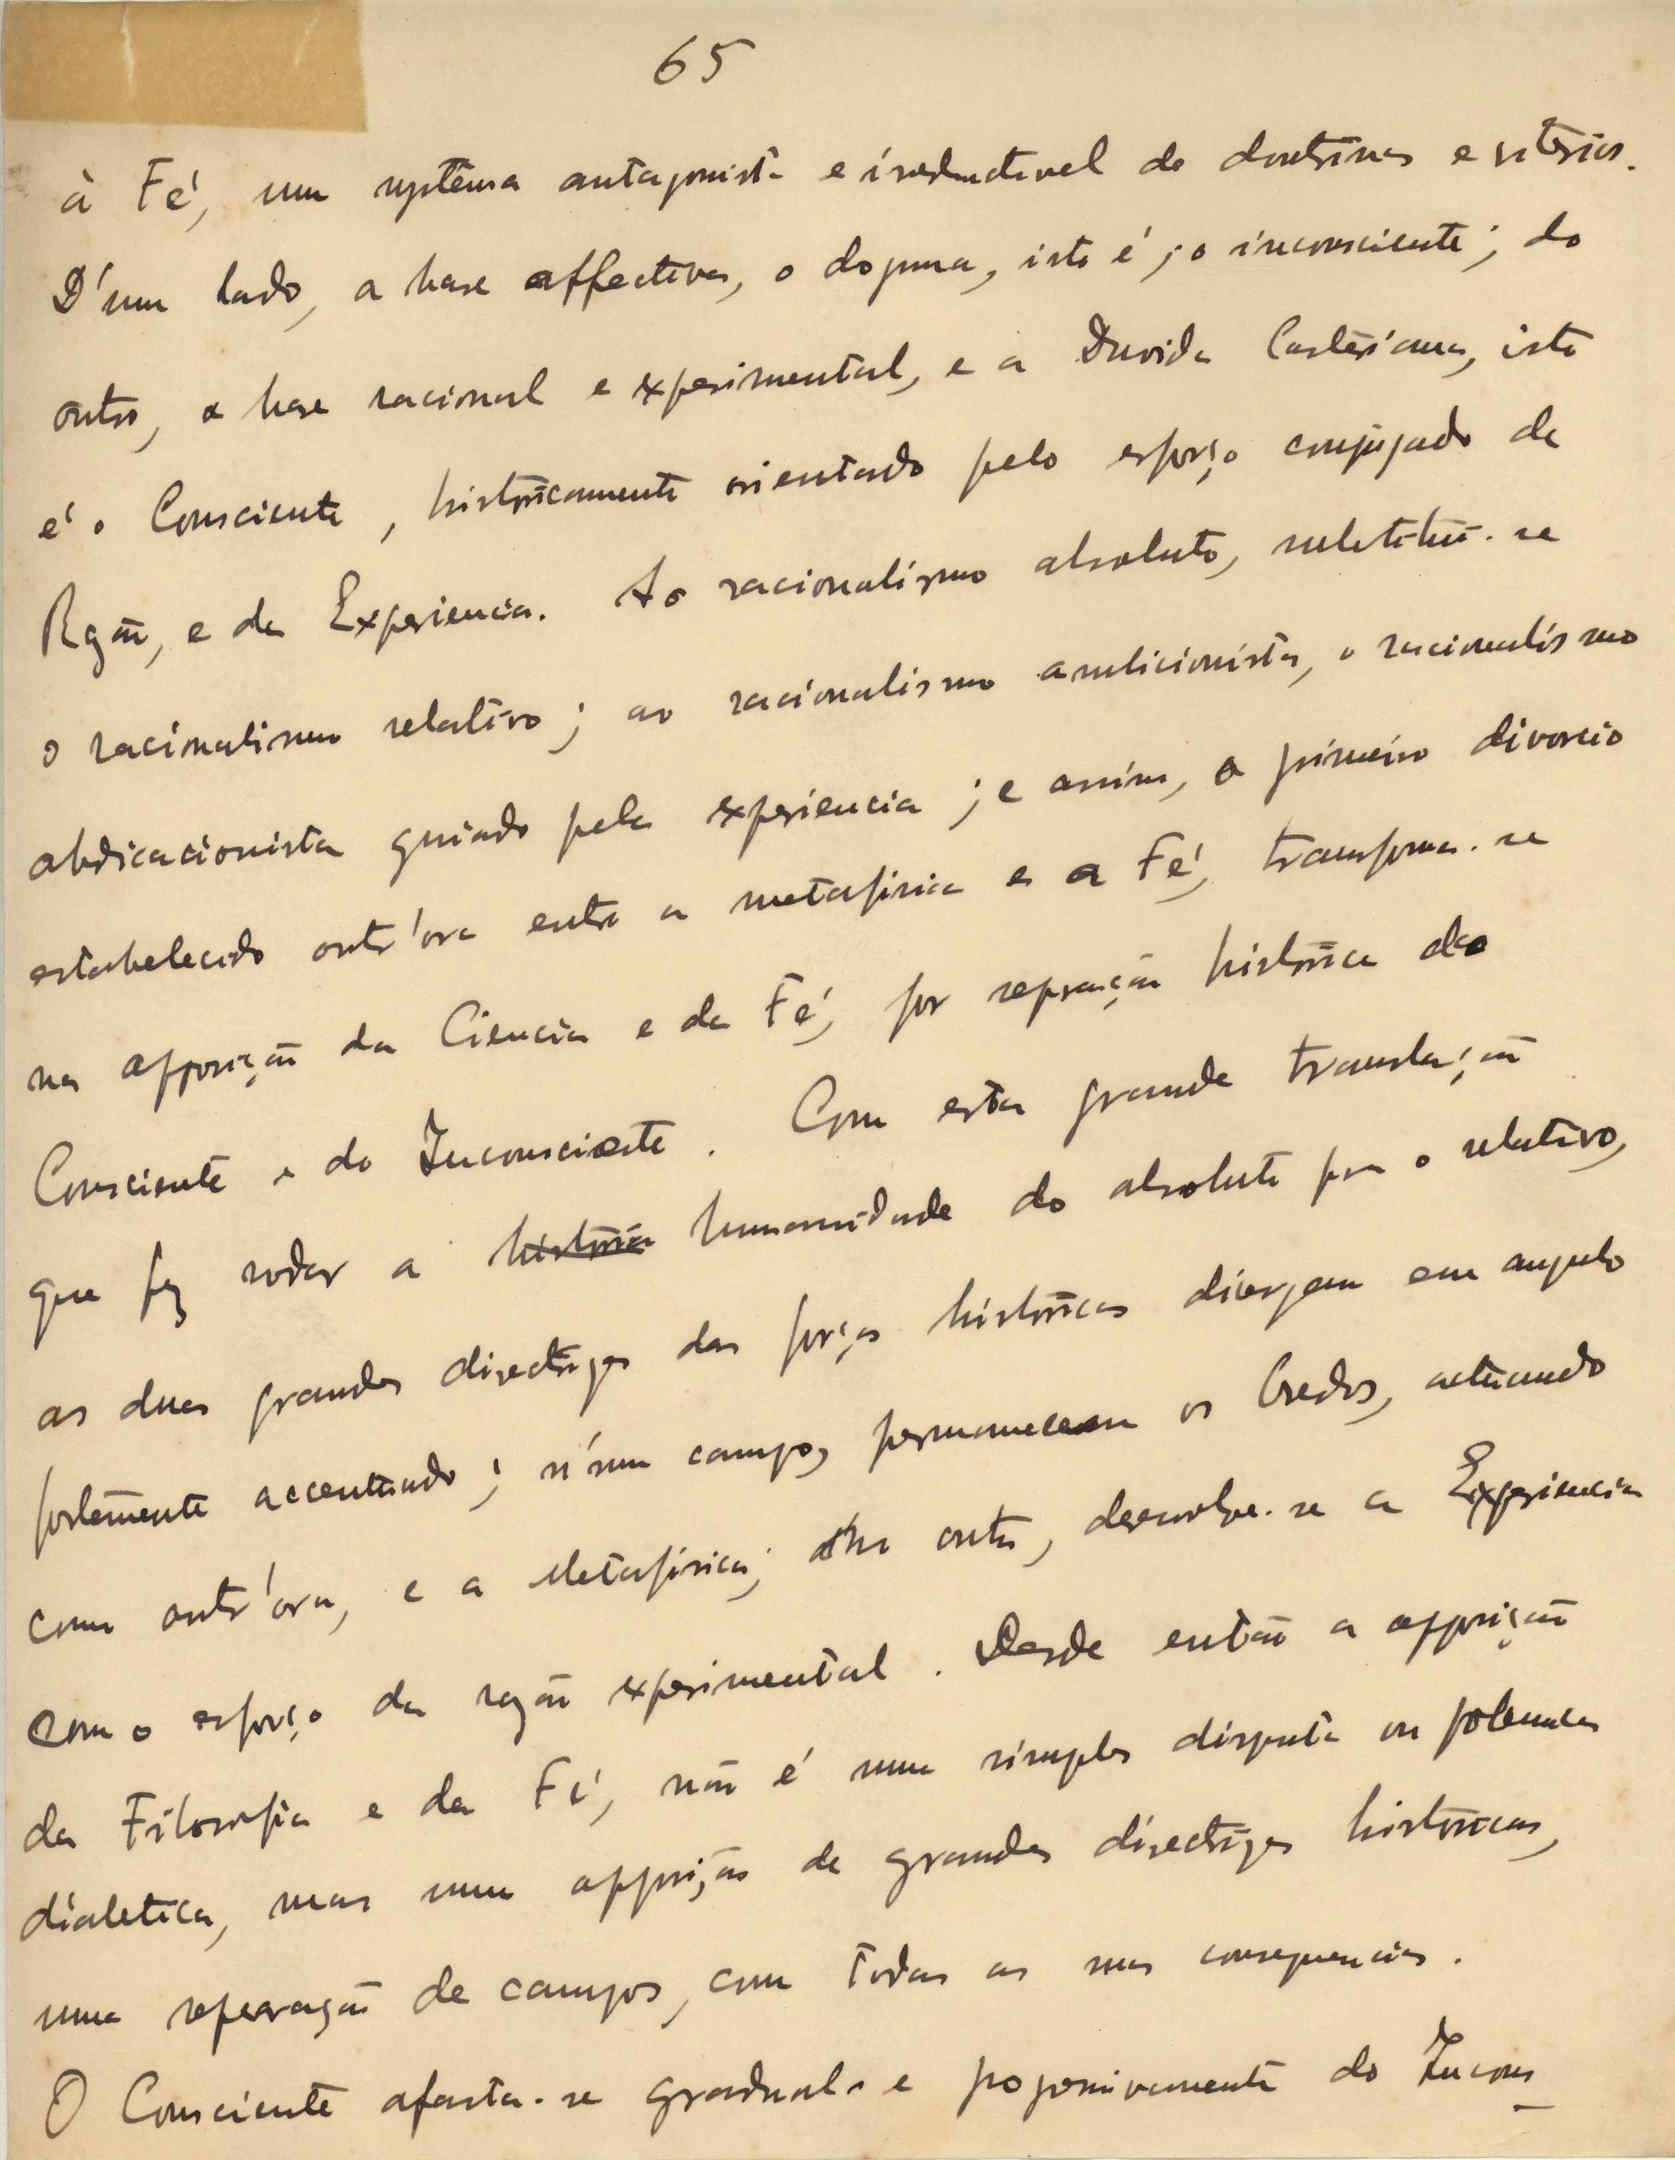 65
à Fé, um systema antagonista e irreductivel de doutrinas e criterios.
D'um lado, a base affectiva, o dogma, isto é, o inconsciente; do
outro, a base racional e experimental, e a Duvida Cartesiana, isto
é o Consciente, historicamente orientado pelo esforço conjugado da
Razão, e da Experiencia. Ao racionalismo absoluto, substitui-se
o racionalismo relativo; ao racionalismo ambicionista, o racionalismo
abdicacionista guiado pela experiencia; e assim, o primeiro divorcio
estabelecido outr'ora entre a metafisica e a Fé, transforma-se
na opposição da Ciencia e da Fé, por separação historica do
Consciente e do Inconsciente. Com esta grande translação
que fez rodar a historia humanidade do absoluto para o relativo,
as duas grandes directrizes das forças historicas divergem em angulo
fortemente accentuado; n'um campo, permanecem os Credos, actuando
como outr'ora, e a Metafisica; no outro, desenvolve-se a Experiencia
com o esforço da razão experimental. Desde então a opposição
da Filosofia e da Fé, não é uma simples disputa ou polemica
dialetica, mas uma opposição de grandes directrizes historicas,
uma separação de campos, com todas as suas consequencias.
O Consciente afasta-se gradual e progressivamente do Incons_